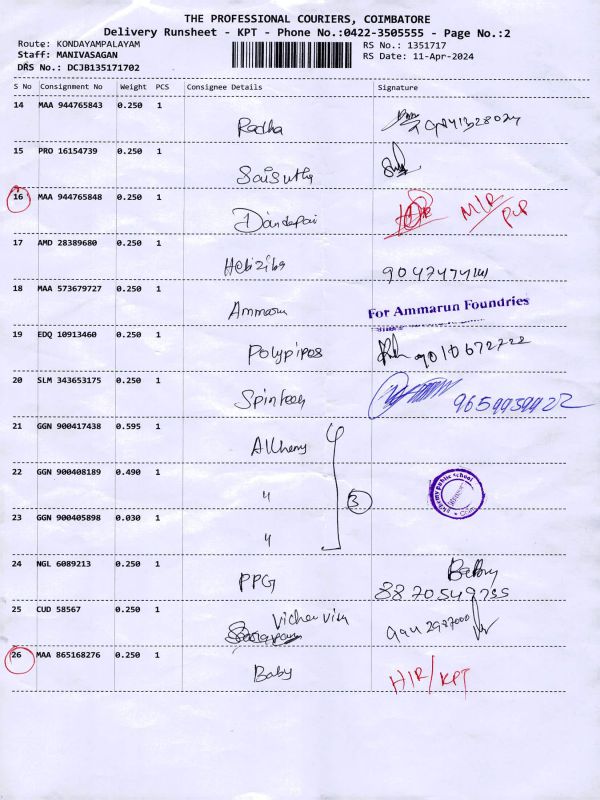 THE PROFESSIONAL COURIERS, COIMBATORE
Delivery Runsheet - KPT - Phone No.:0422-3505555 - Page No.:2
Route: KONDAYAMPALAYAM
RS No.: 1351717
Staff: MANIVASAGAN
RS Date: 11-Apr-2024
DRS No.: DCJB135171702
S No Consignment No Weight PCS Consignee Details Signature
14 MAA 944765843 0.250 1
Radha
15 PRO 16154739 0.250 1
16 MAA 944765848 0.250 1
17 AMD 28389680 0.250 1
18 MAA 573679727 0.250 1
Ammarun For Ammarun Foundries
19 EDQ 10913460 0.250 1
Polypipes 9010672222
20 SLM 343653175 0.250 1
9659939922
21 GGN 900417438 0.595 1
Alchemy
22 GGN 900408189 0.490 1
" 3
23 GGN 900405898 0.030 1
"
24 NGL 6089213 0.250 1
PPG 8870549755
25 CUD 58567 0.250 1
26 MAA 865168276 0.250 1
Baby HIR/KPT